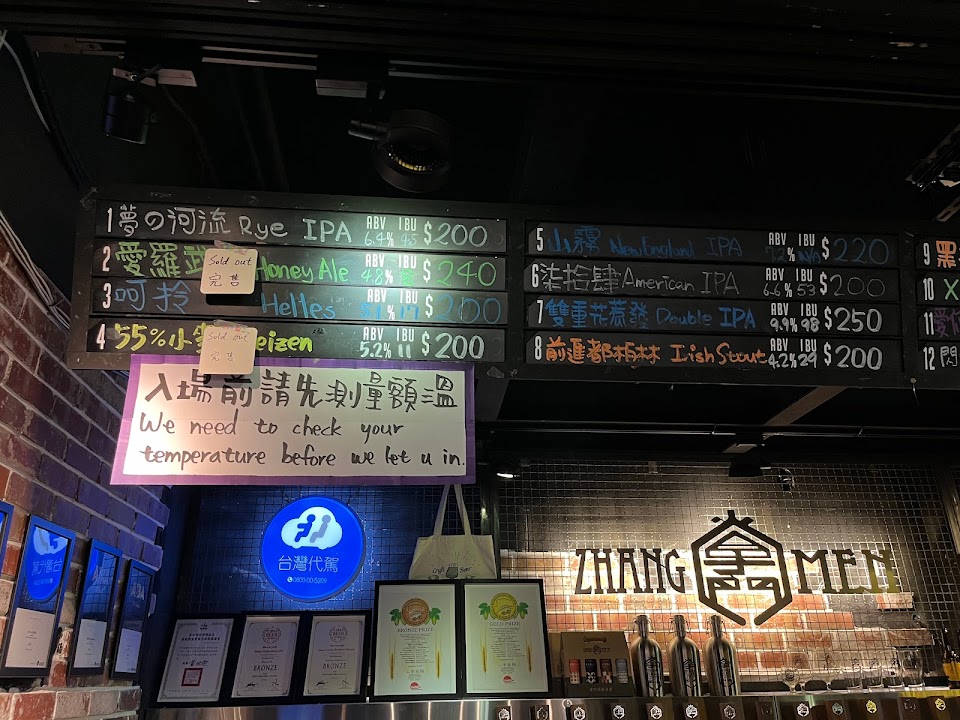 1 夢の河流 Rye IPA ABV 6.4% IBU 45 $200
2 愛羅 Honey Ale 4.8% $240
Sold out
完售
3 呵拎 Helles ABV 5.1% IBU 17 $200
4 55%小 eizen ABV 5.2% IBU 11 $200
Sold out
完售
5 小霧 New England IPA ABV 7.2% IBU N/A $220
6 柒拾肆 American IPA ABV 6.6% IBU 53 $200
7 雙重花蕊發 Double IPA ABV 9.9% IBU 98 $250
8 前進都柏林 Irish Stout ABV 4.2% IBU 29 $200
9 黑
10 X
11 愛
12 閃
入場前請先測量額溫
We need to check your
temperature before we let u in.
台灣代駕
0800-00-5209
BRONZE
BRONZE
BRONZE PRIZE
GOLD PRIZE
Craft Beer
ZHANG MEN